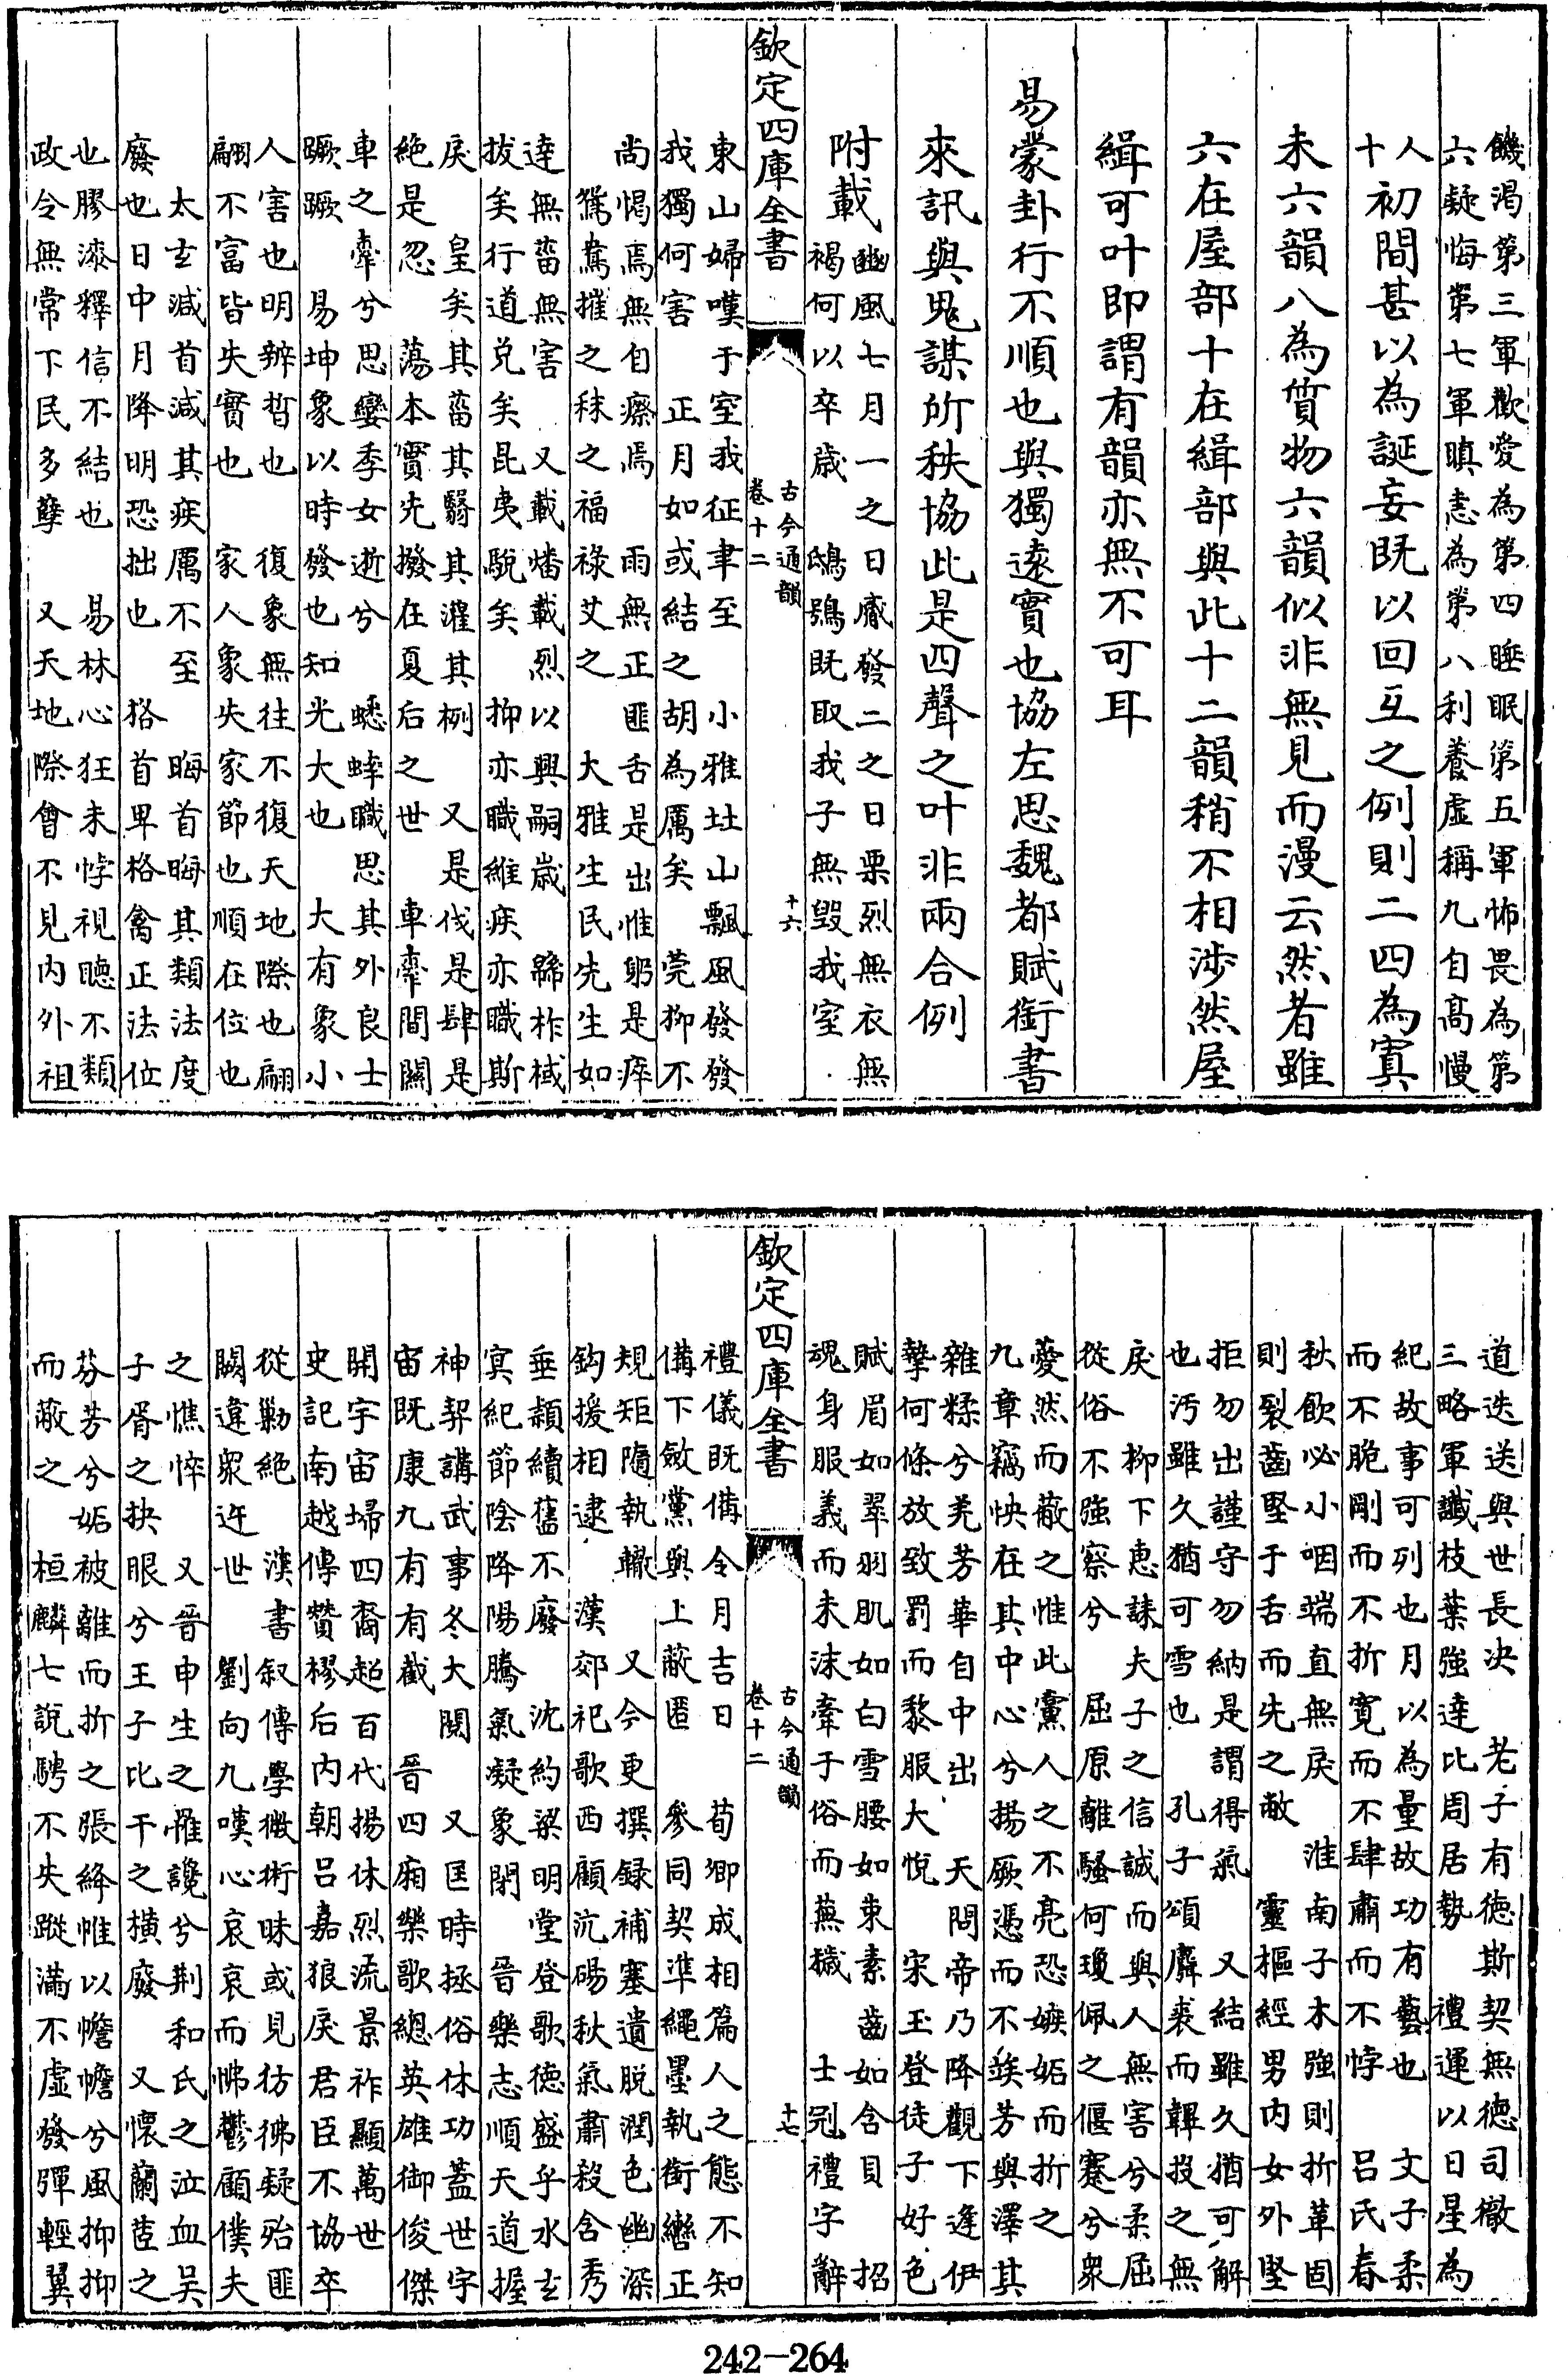 饑渴第三軍歡愛為第四睡眠第五軍怖畏為第
六疑悔第七軍瞋恚為第八利養虛稱九自高慢
人初間甚以為誕妄既以回互之例則二四為寘
十
未六韻八為質物六韻似非無見而漫云然者雖
六在屋部十在緝部與此十二韻稍不相渉然屋
緝可叶即謂有韻亦無不可耳
易蒙卦行不順也與獨遠實也協左思魏都賦銜書
來訊與鬼謀所秩協此是四聲之叶非兩合例
附載
豳風七月一之日觱發二之日栗烈無衣無
褐何以卒歲　鴟鴞既取我子無毀我室
欽定四庫全書
古今通韻
卷十二
十六
東山婦嘆于室我征聿至　小雅𡉏山飄風發發
我獨何害　正月如或結之胡為厲矣　菀抑不
尚愒焉無自瘵焉　雨無正匪舌是出惟躬是瘁
鴛鴦摧之秣之福祿艾之　大雅生民先生如
達無菑無害　又載燔載烈以興嗣歲　緜柞棫
拔矣行道兌矣昆夷駾矣　抑亦職維疾亦職斯
戾　皇矣其菑其翳其灌其栵　又是伐是肆是
絶是忽　蕩本實先撥在夏后之世　車舝間關
車之舝兮思孌季女逝兮　蟋蟀職思其外良士
蹶蹶　易坤象以時發也知光大也　大有象小
人害也明辨晢也　復象無往不復天地際也翩
翩不富皆失實也　家人象失家節也順在位也
太𤣥減首減其疾厲不至　晦首晦其類法度
廢也日中月降明恐拙也　㺉首卑格禽正法位
也膠漆釋信不結也　易林心狂未悖視聽不類
政令無常下民多孽　又天地際會不見内外祖
道迭送與世長決　老子有德斯契無德司徹
三略軍讖枝葉強達比周居勢　禮運以日星為
紀故事可列也月以為量故功有藝也　文子柔
而不脆剛而不折寛而不肆肅而不悖　呂氏春
秋飲必小咽端直無戾　淮南子木強則折革固
則裂齒堅于舌而先之敝　靈樞經男内女外堅
拒勿出謹守勿納是謂得氣　又結雖久猶可解
也污雖久猶可雪也　孔子頌麛裘而鞸投之無
戾　柳下惠誄夫子之信誠而與人無害兮柔屈
從俗不強察兮　屈原離騷何瓊佩之偃蹇兮衆
薆然而蔽之惟此黨人之不亮恐嫉妬而折之
九章竊快在其中心兮揚厥憑而不竢芳與澤其
雜糅兮羌芳華自中出　天問帝乃降觀下逢伊
摯何條放致罰而黎服大悅　宋玉登徒子好色
賦眉如翠羽肌如白雪腰如束素齒如含貝　招
魂身服義而未沫牽于俗而蕪穢　士冠禮字辭
欽定四庫全書
古今通韻
卷十二
十七
禮儀既備令月吉日　荀卿成相篇人之態不知
備下斂黨與上蔽匿　參同契準繩墨執銜轡正
規矩隨執轍　又今更撰録補塞遺脱潤色幽深
鈎援相逮　漢郊祀歌西顥沆碭秋氣肅殺含秀
垂穎續舊不廢　沈約梁明堂登歌德盛乎水𤣥
冥紀節陰降陽騰氣凝象閉　晉樂志順天道握
神契講武事冬大閱　又匡時拯俗休功蓋世宇
宙既康九有有截　晉四廂樂歌總英雄御俊傑
開宇宙埽四裔超百代揚休烈流景祚顯萬世
史記南越傳贊樛后内朝呂嘉狼戾君臣不協卒
從勦絶　漢書叙傳學微術昧或見彷彿疑殆匪
闕違衆迕世　劉向九嘆心哀哀而怫鬱顧僕夫
之憔悴　又晉申生之罹讒兮荆和氏之泣血吳
子胥之抉眼兮王子比干之横廢　又懷蘭茝之
芬芳兮妬被離而折之張絳帷以幨幨兮風抑抑
而蔽之　桓麟七説騁不失蹤滿不虛發彈輕翼
242—264